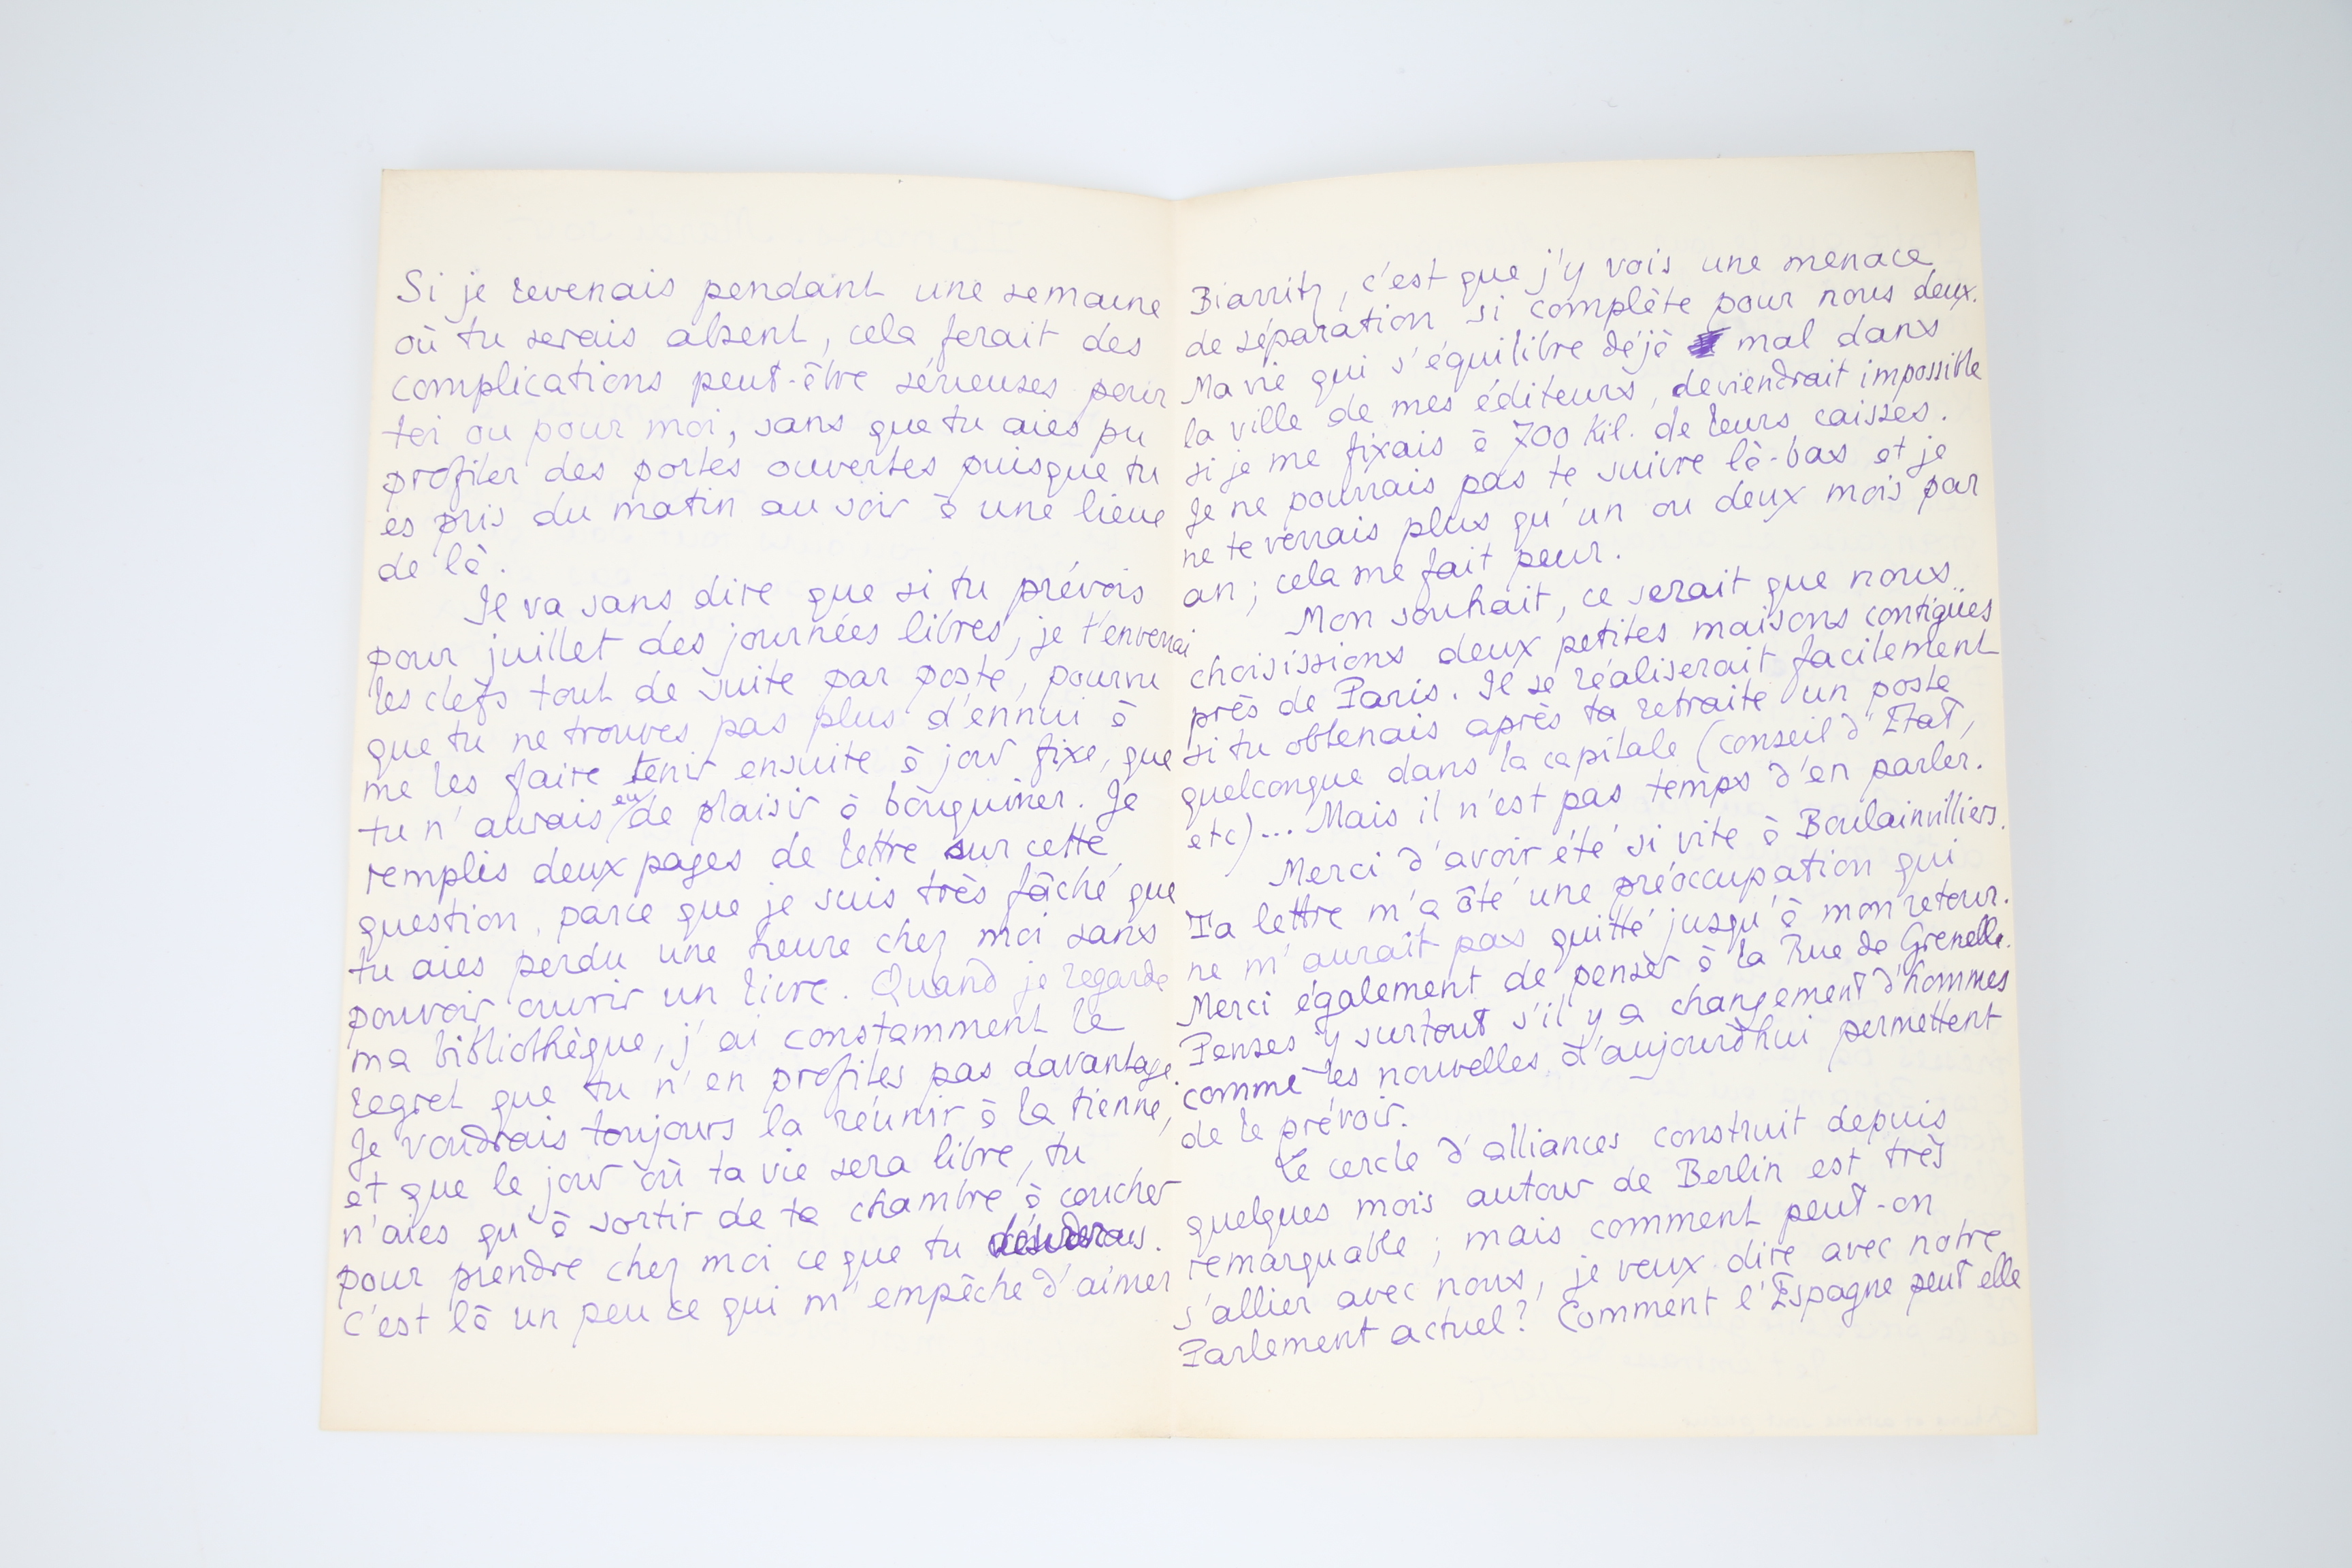 Si je revenais pendant une semaine
où tu serais absent, cela ferait des
complications peut-être sérieuses pour
toi ou pour moi, sans que tu aies pu
profiter des portes ouvertes puisque tu
es pris du matin au soir à une lieue
de là.
Il va sans dire que si tu prévois
pour juillet des journées libres, je t'enverrai
les clefs tout de suite par poste, pourvu
que tu ne trouves pas plus d'ennui à
me les faire tenir ensuite à jour fixe, que
tu n'aurais eu de plaisir à bouquiner. Je
remplis deux pages de lettre sur cette
question, parce que je suis très fâché que
tu aies perdu une heure chez moi sans
pouvoir ouvrir un livre. Quand je regarde
ma bibliothèque, j'ai constamment le
regret que tu n'en profites pas davantage.
Je voudrais toujours la réunir à la tienne,
et que le jour où ta vie sera libre, tu
n'aies qu'à sortir de ta chambre à coucher
pour prendre chez moi ce que tu
C'est là un peu ce qui m'empêche d'aimer
Biarritz, c'est que j'y vois une menace
de séparation si complète pour nous deux.
Ma vie qui s'équilibre déjà mal dans
la ville de mes éditeurs, deviendrait impossible
si je me fixais à 700 Kil. de leurs caisses.
Je ne pourrais pas te suivre là-bas et je
ne te verrais plus qu'un ou deux mois par
an ; cela me fait peur.
Mon souhait, ce serait que nous
choisissions deux petites maisons contigües
près de Paris. Il se réaliserait facilement
si tu obtenais après ta retraite un poste
quelconque dans la capitale (conseil d'Etat,
etc)... Mais il n'est pas temps d'en parler.
Merci d'avoir été si vite à Boulainvilliers.
Ta lettre m'a ôté une préoccupation qui
ne m'aurait pas quitté jusqu'à mon retour.
Merci également de penser à la Rue de Grenelle.
Penses y surtout s'il y a changement d'hommes
comme les nouvelles d'aujourd'hui permettent
de le prévoir.
Le cercle d'alliances construit depuis
quelques mois autour de Berlin est très
remarquable ; mais comment peut-on
s'allier avec nous, je veux dire avec notre
Parlement actuel ? Comment l'Espagne peut elle